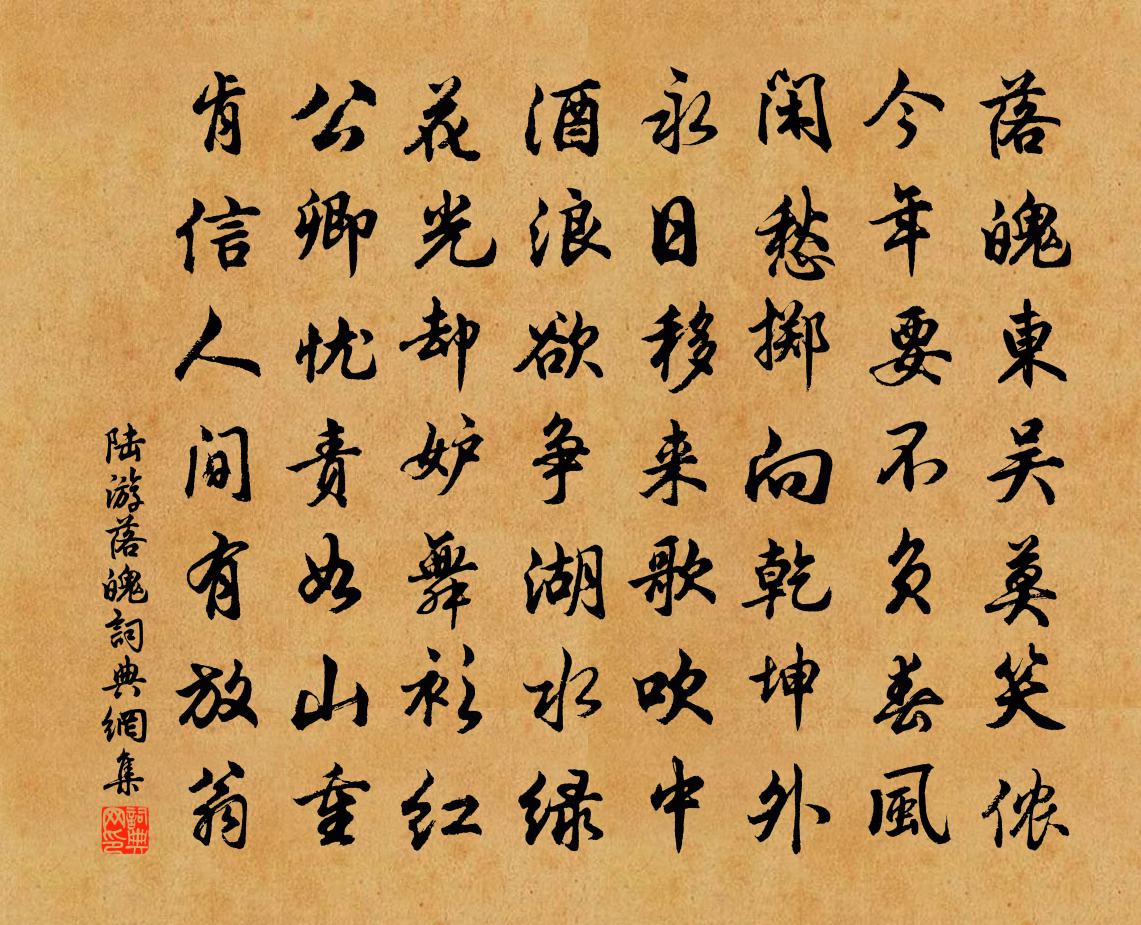 落魄東吴莫笑侬
今年要不负春風
闲愁掷向乾坤外
永日移来歌吹中
酒浪欲争湖水绿
花光却妒舞衫红
公卿忧责如山重
肯信人间有放翁
陆游落魄詞典網集
詞典网印